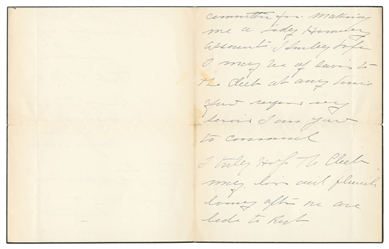 committee for making
me a Life Honorary
I truly hope
I may be of service to
the Club at any time
your require my
service I am yours
to command
I truly Hope The Club
may live and flourish
long after we are
laide to Rest